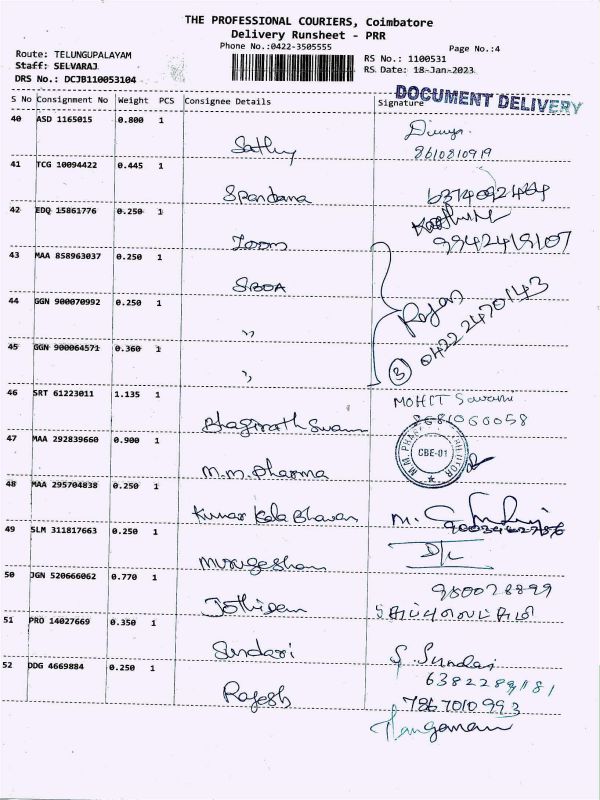 THE PROFESSIONAL COURIERS, Coimbatore
Delivery Runsheet - PRR
Phone No.:0422-3505555
Page No.:4
Route: TELUNGUPALAYAM
Staff: SELVARAJ
DRS No.: DCJB110053104
RS No.: 1100531
RS Date: 18-Jan-2023
DOCUMENT DELIVERY
S No Consignment No Weight PCS Consignee Details Signature
40 ASD 1165015 0.800 1
Sathy
8610810919
41 TCG 10094422 0.445 1
Spandana
42 EDQ 15861776 0.250 1
Zoom
9942419107
43 MAA 858963037 0.250 1
SBOA
44 GGN 900070992 0.250 1
Rajan
04222470143
45 GGN 900064571 0.360 1
3
46 SRT 61223011 1.135 1
MOHIT Swami
Bhagirath Swami
8681060058
47 MAA 292839660 0.900 1
CBE-01
M.M. Pharma
48 MAA 295704838 0.250 1
Kumar Kala Bhavan
49 SLM 311817663 0.250 1
Murugeshan
D/L
50 JGN 520666062 0.770 1
Jothidam
51 PRO 14027669 0.350 1
Sundari
S. Sundari
52 DDG 4669884 0.250 1
Rajesh
7867010993